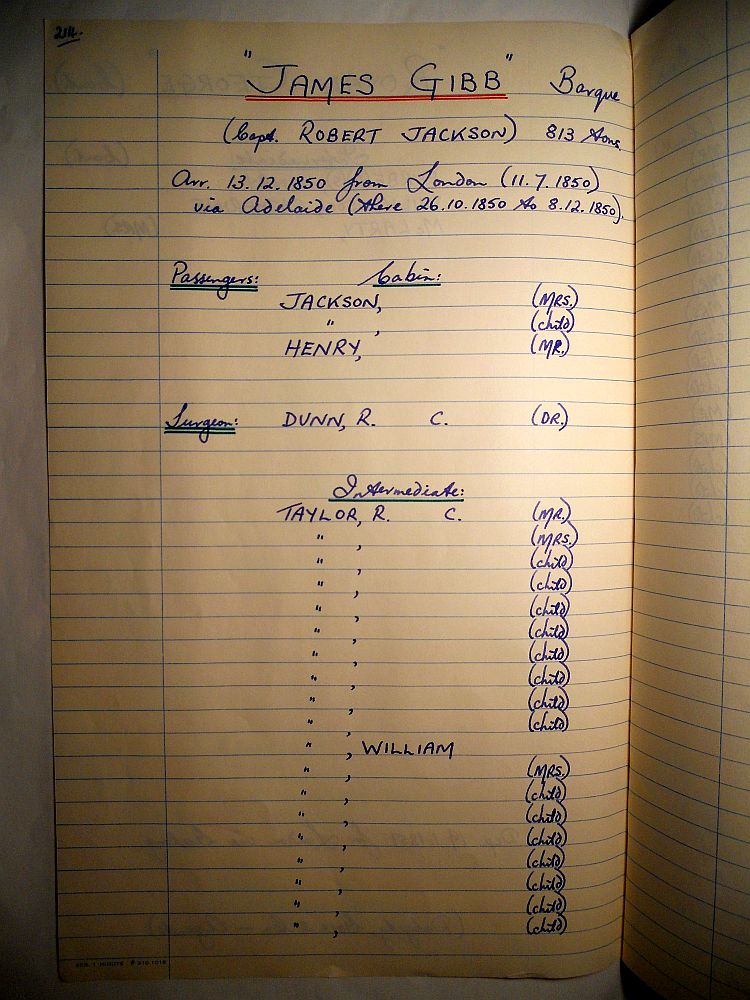 214.
"JAMES GIBB" Barque
(Capt. ROBERT JACKSON) 813 tons
Arr. 13.12.1850 from London (11.7.1850)
via Adelaide (there 26.10.1850 to 8.12.1850).
Passengers: Cabin:
JACKSON, (MRS.)
" , (child)
HENRY, (MR.)
Surgeon: DUNN, R. C. (DR.)
Intermediate:
TAYLOR, R. C. (MR.)
" , (MRS.)
" , (child)
" , (child)
" , (child)
" , (child)
" , (child)
" , (child)
" , (child)
" , (child)
" , WILLIAM
" , (MRS.)
" , (child)
" , (child)
" , (child)
" , (child)
" , (child)
" , (child)
" , (child)